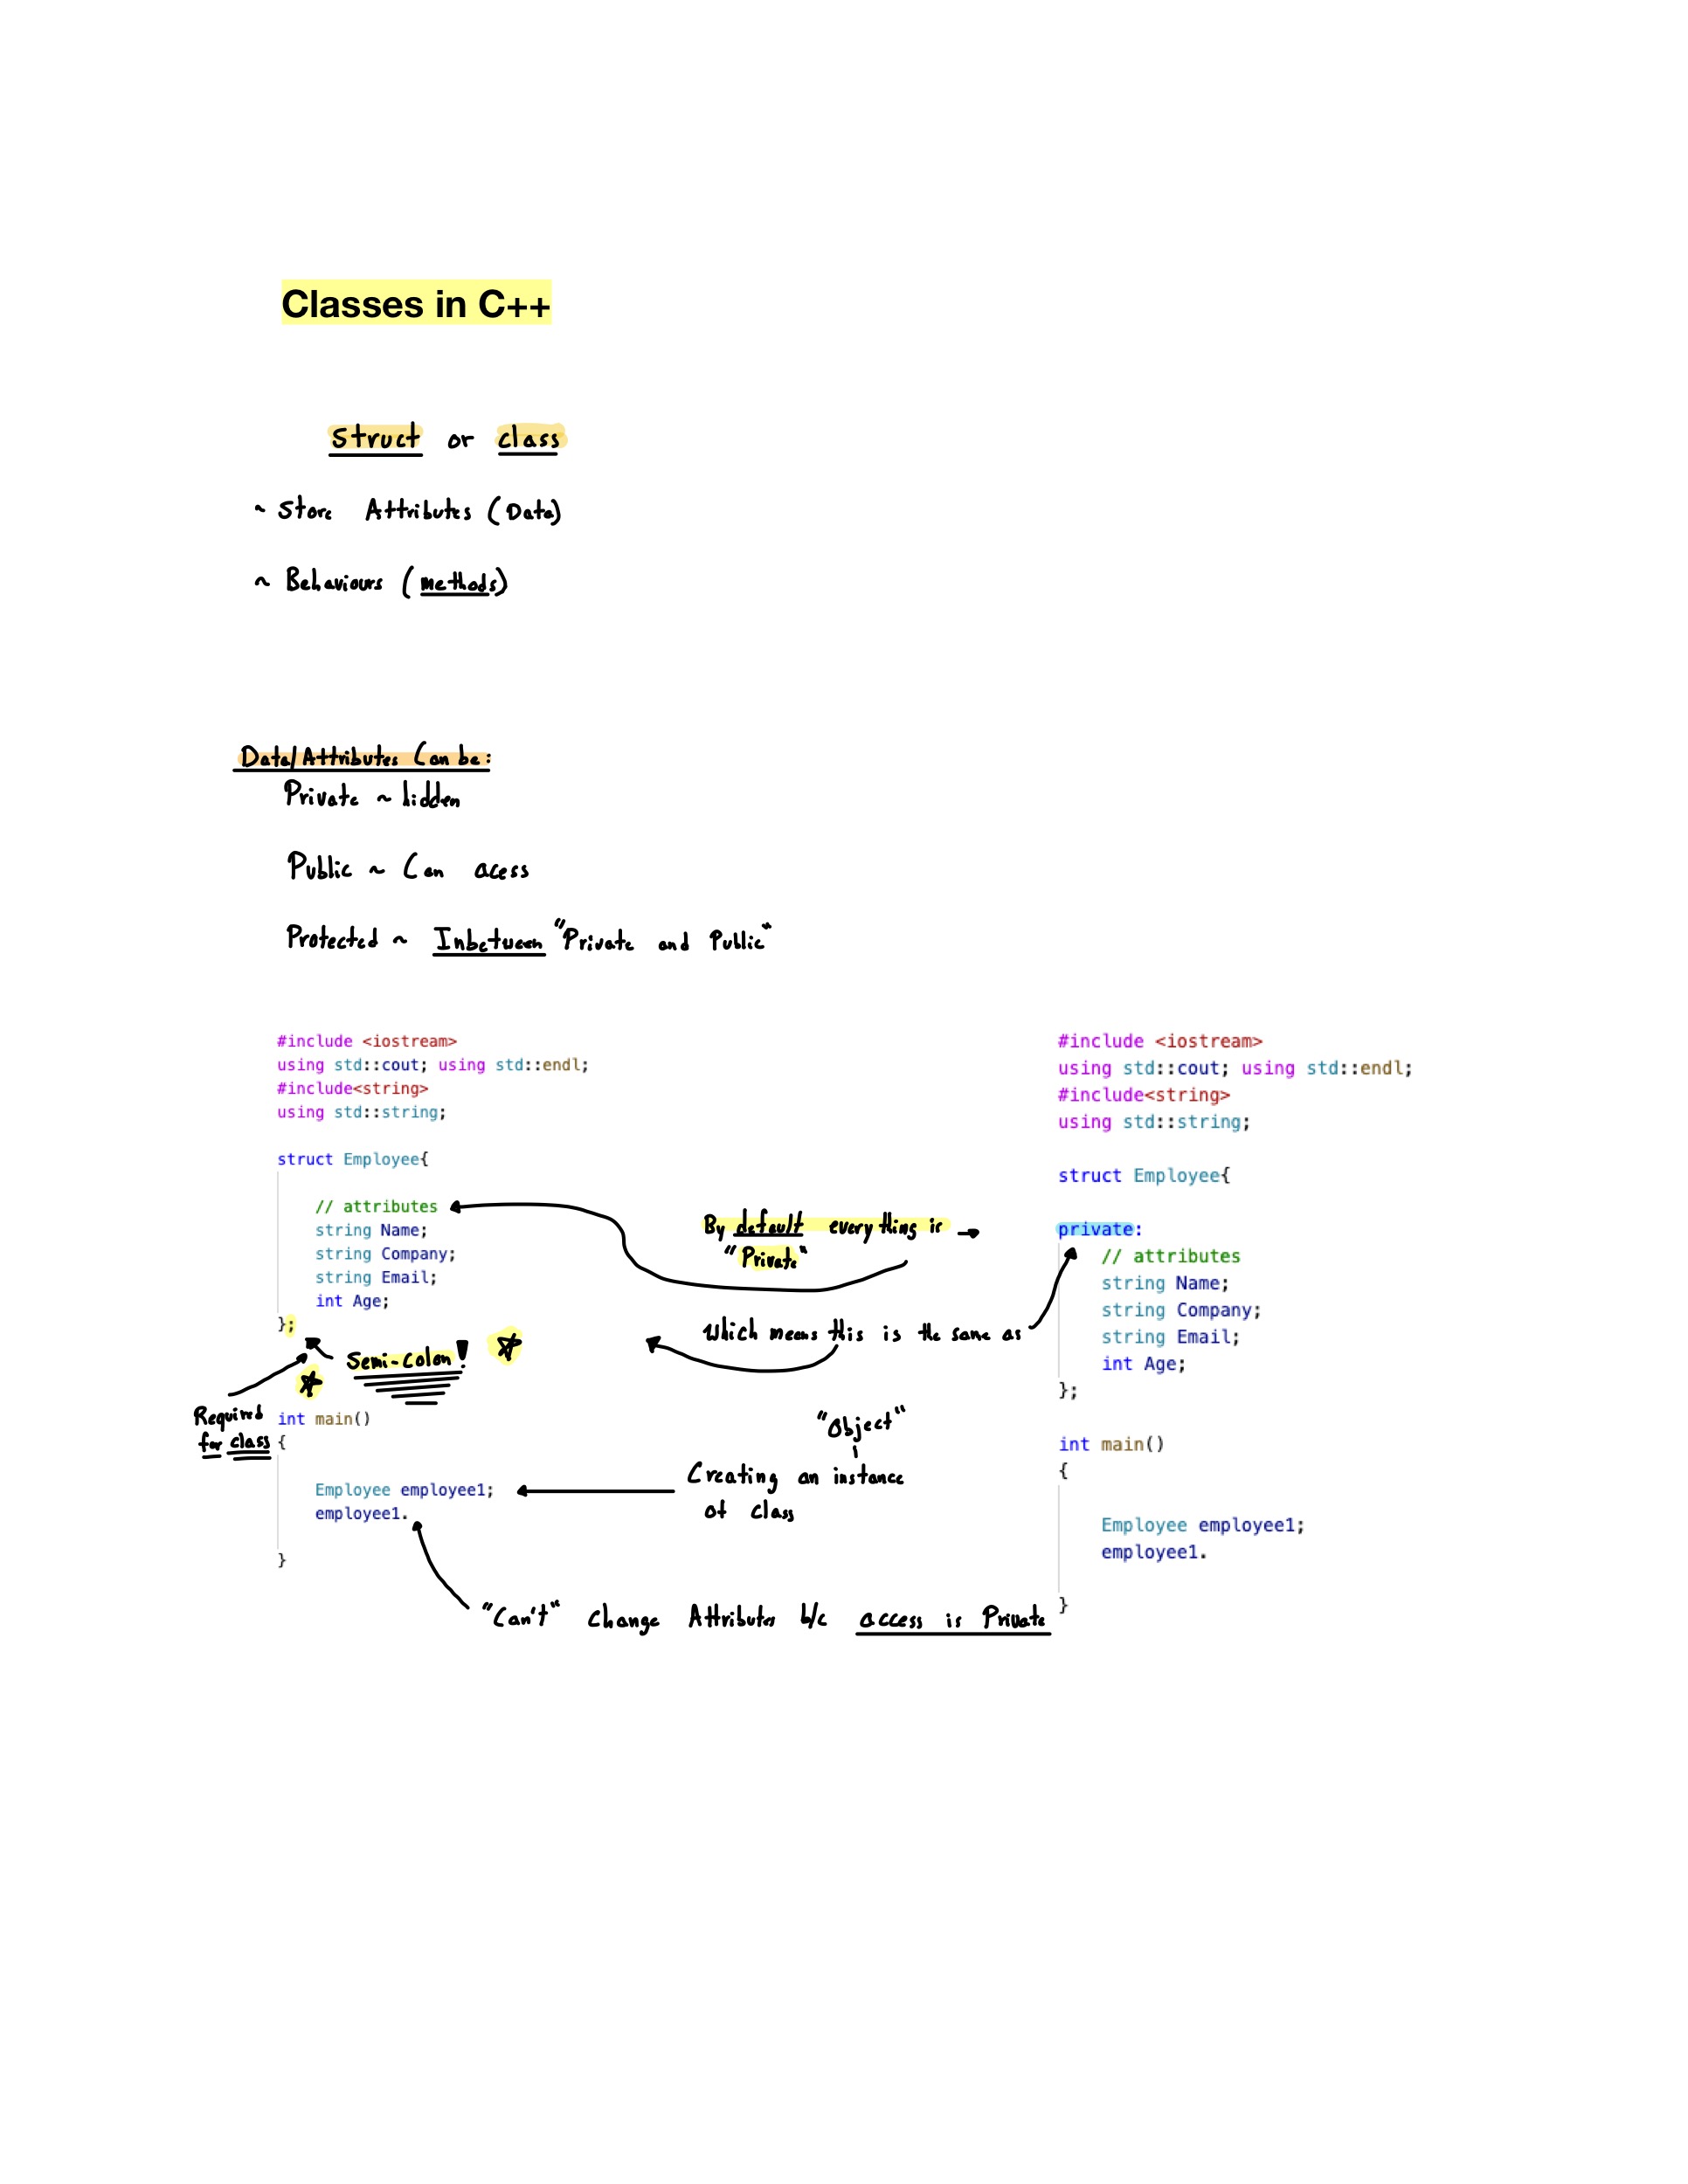 Classes in C++
struct or class
~ Store Attributes (Data)
~ Behaviours (methods)
Data/Attributes Can be:
Private ~ hidden
Public ~ Can acess
Protected ~ Inbetween "Private and Public"
#include <iostream>
using std::cout; using std::endl;
#include<string>
using std::string;
struct Employee{
// attributes
string Name;
string Company;
string Email;
int Age;
};
Semi-Colon!
Required
for class
int main()
{
Employee employee1;
employee1.
}
By default everything is
"Private"
which means this is the same as
"Object"
Creating an instance
of class
"Can't" change Attributes b/c access is Private
#include <iostream>
using std::cout; using std::endl;
#include<string>
using std::string;
struct Employee{
private:
// attributes
string Name;
string Company;
string Email;
int Age;
};
int main()
{
Employee employee1;
employee1.
}